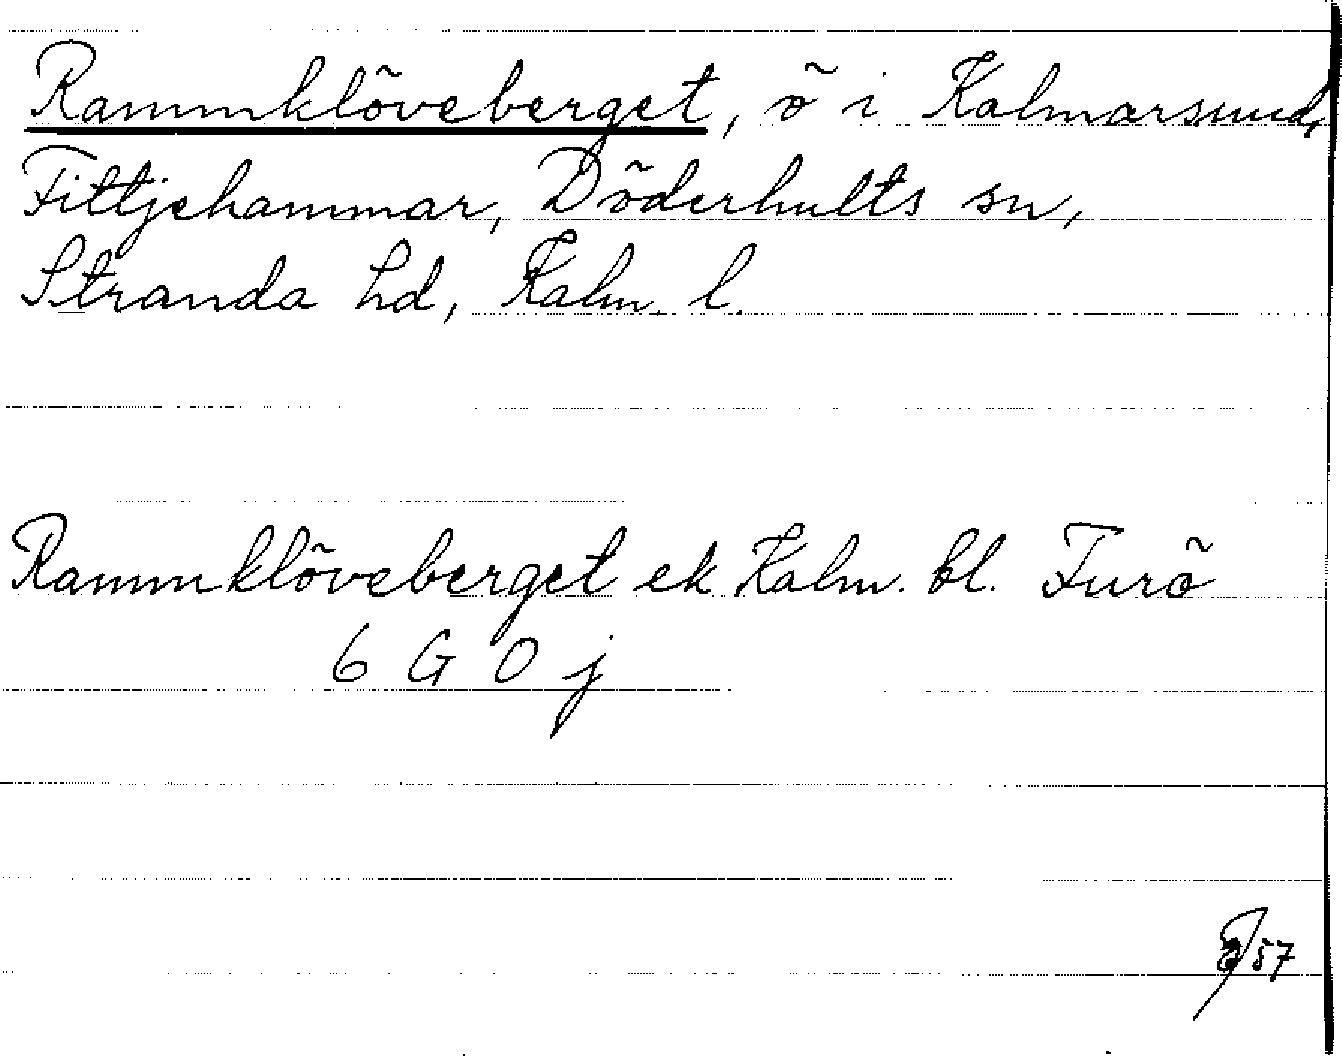 Rammklöveberget, ö i Kalmarsund,
Fittjehammar, Döderhults sn,
Stranda hd, Kalm. l.
Rammklöveberget ek Kalm. bl. Furö
6 G 0 j
57